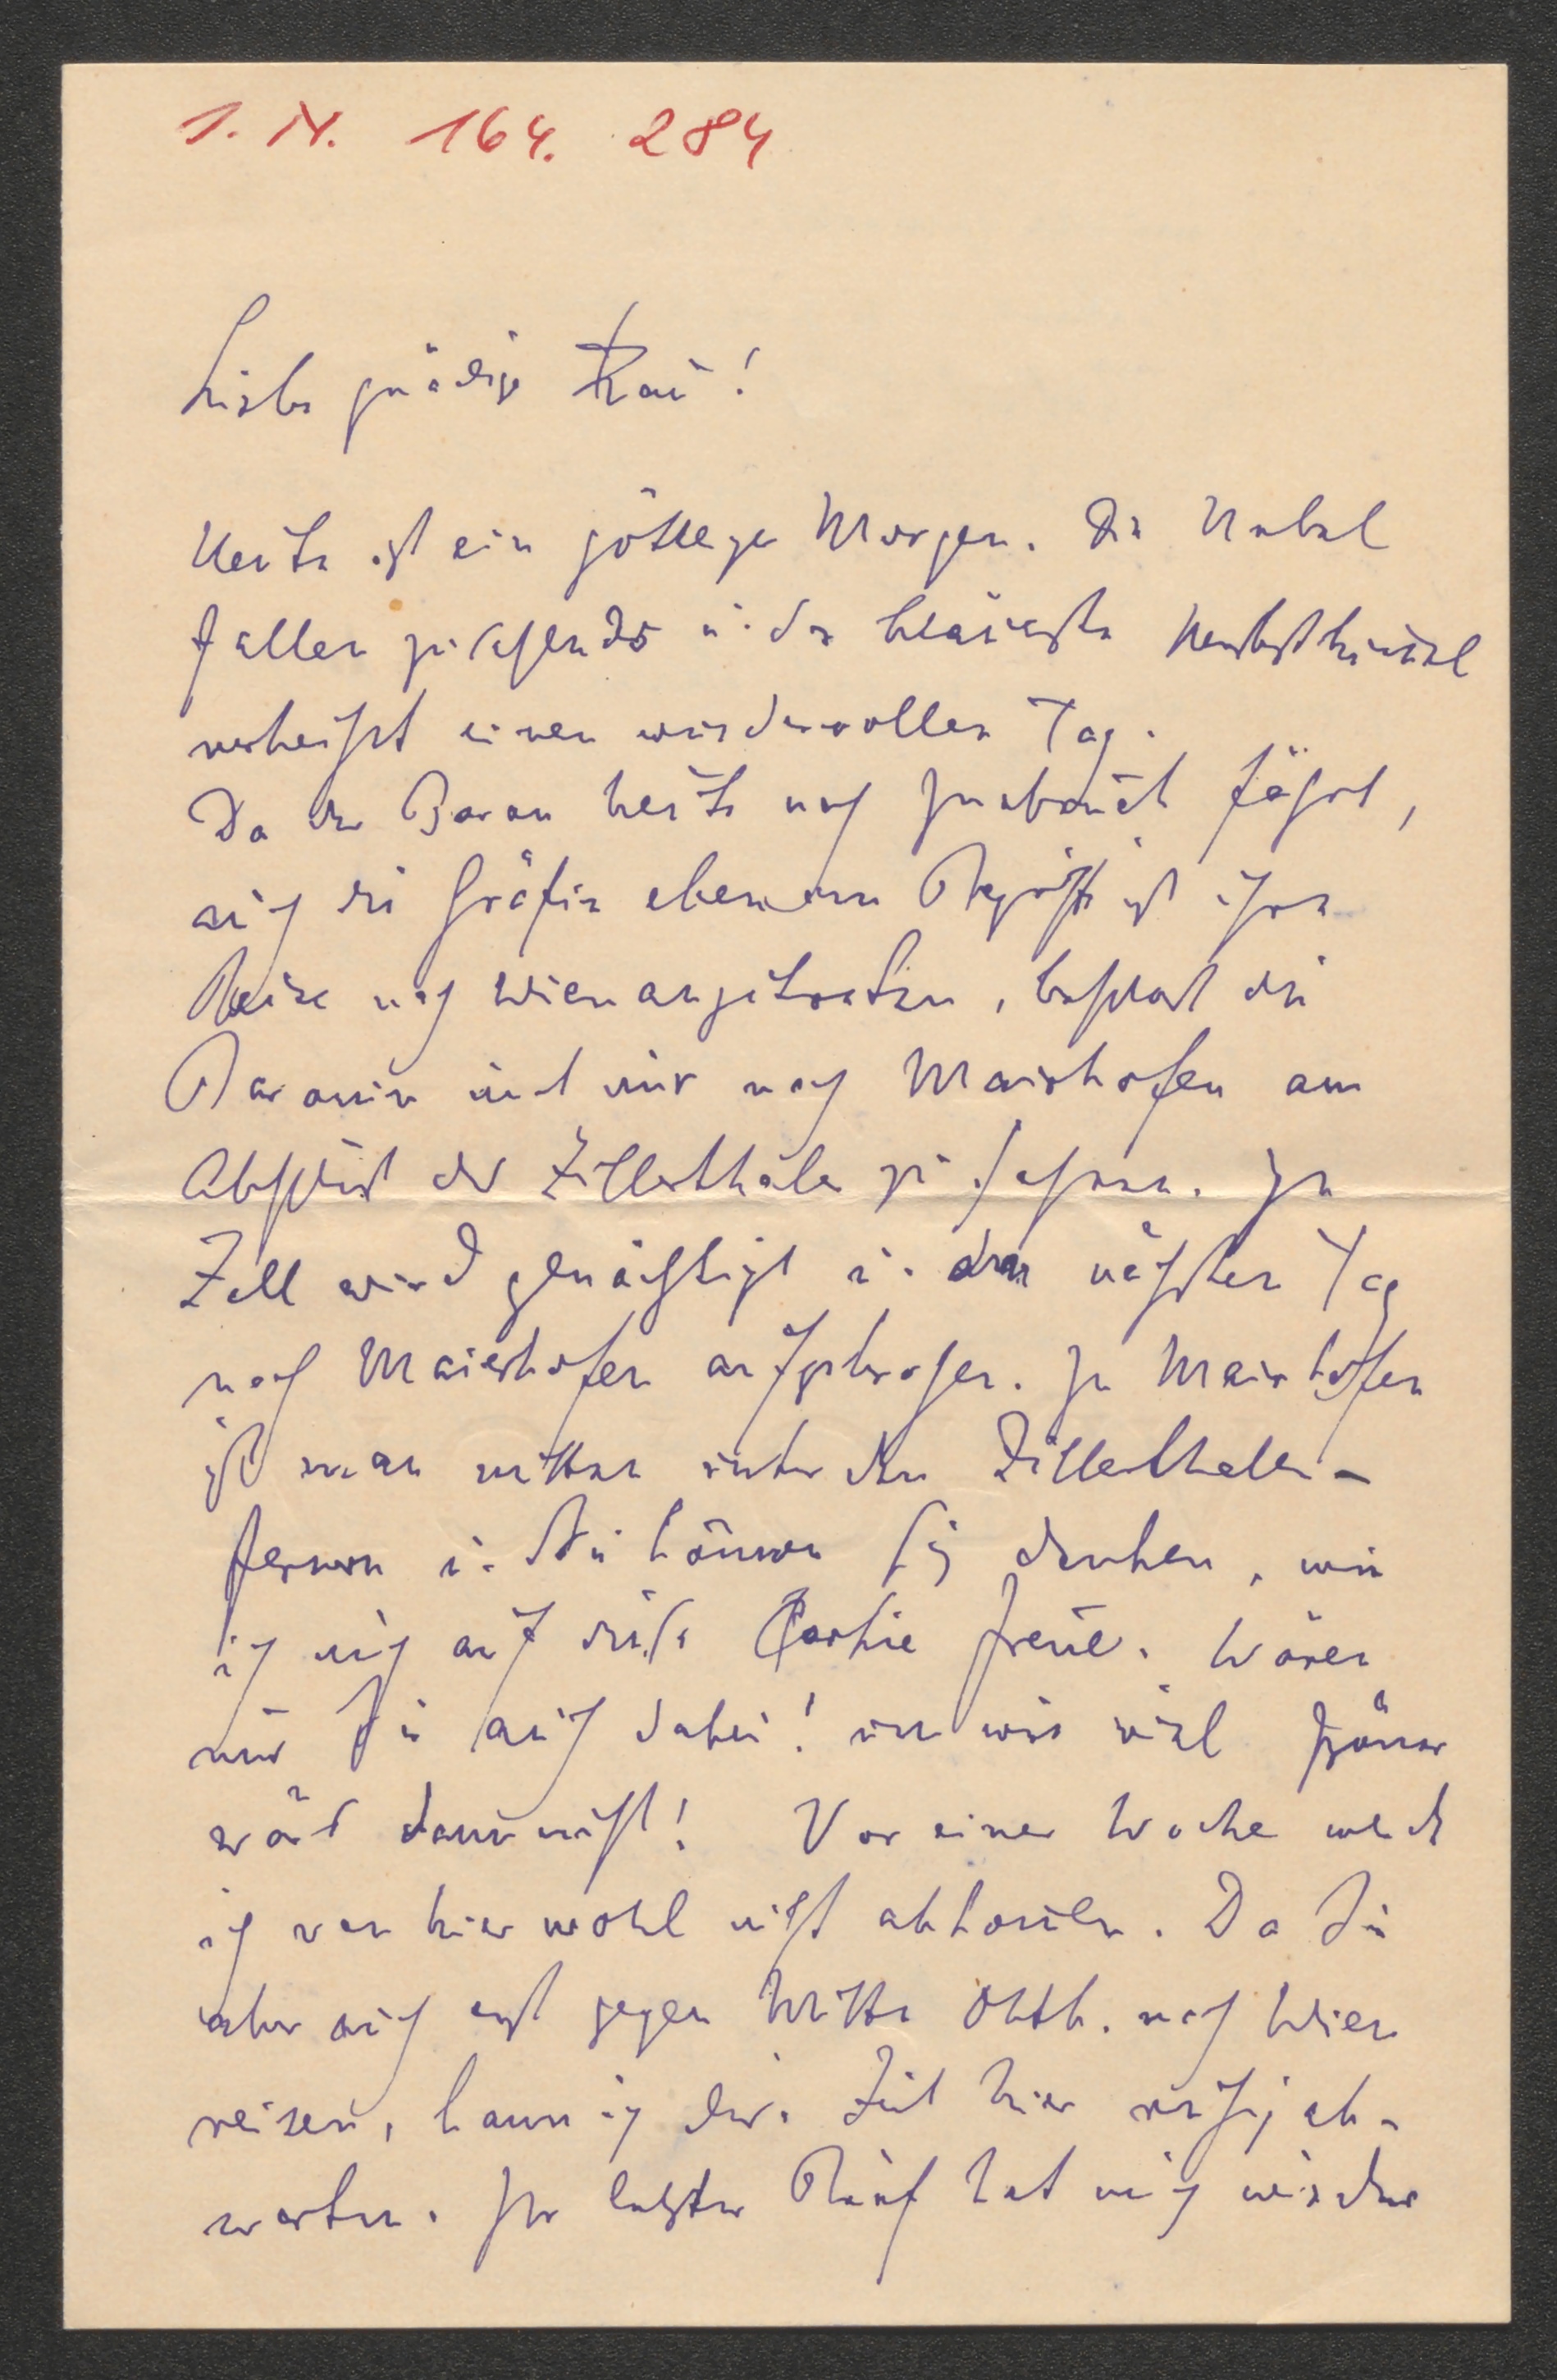 I. N. 164. 284
Liebe gnädige Frau!
Heute ist ein göttlicher Morgen. Die Nebel
fallen zusehends u. der blaueste Herbsthimmel
verheißt einen wundervollen Tag.
Da der Baron heute nach Innsbruck fährt,
auch die Gräfin eben im Begriffe ist ihre
Reise nach Wien anzutreten, beschloß die
Baronin mit mir nach Mairhofen am
Abschluß des Zillerthales zu fahren. In
Zell wird genächtigt u. den nächsten Tag
nach Maierhofen aufgebrochen. In Mairhofen
ist man mitten unter den Zillerthaler-
fernern u. Sie können sich denken, wie
ich mich auf diese Partie freue. Wären
nur Sie auch dabei! um wie viel schöner
wär's dann nicht! Vor einer Woche werde
ich von hier wohl nicht abkommen. Da Sie
aber auch erst gegen Mitte Oktb. nach Wien
reisen, kann ich die Zeit hier ruhig ab-
warten. Ihr letzter Brief hat mich wieder